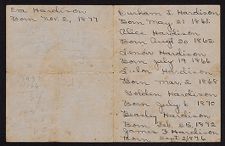 Eva Hardison
Born Nov. 2, 1877
Durham L Hardison
Born May 21 1861
Alice Hardison
Born Augst 20 1862
Lenor Hardison
Born July 19 1866
Hardison
Born Mar. 2 1868
Holden Hardison
Born July 6 1870
Hardison
Born Feb 25, 1872
James G Hardison
Born Sept 2 1876